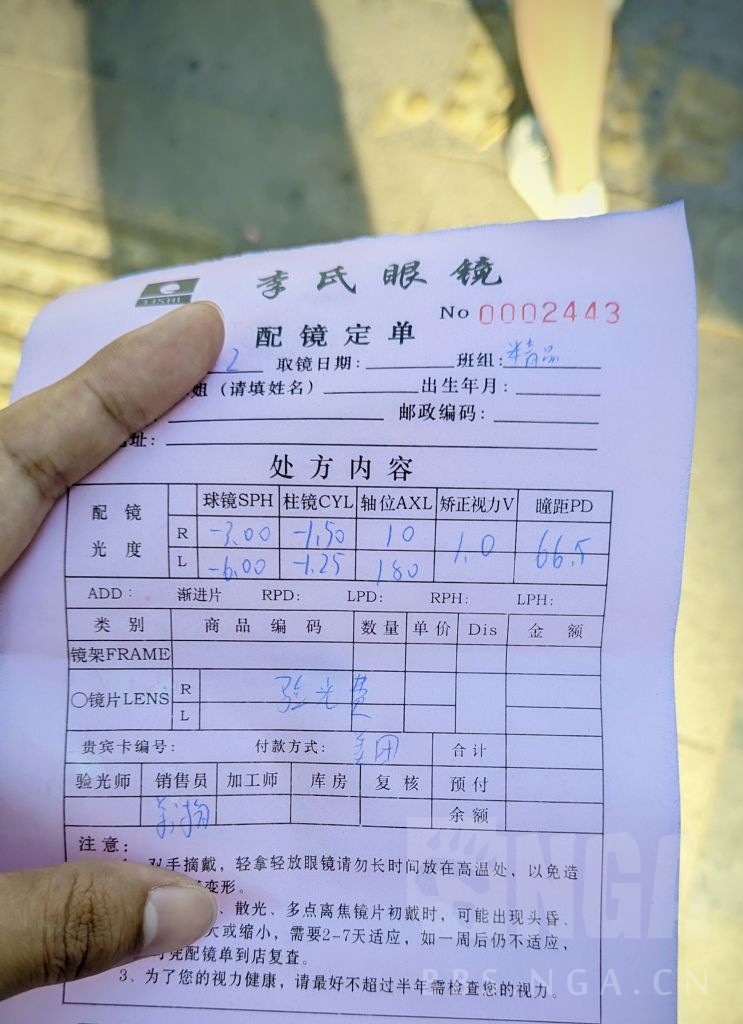 JJSHI
李氏眼镜
No 0002443
配镜定单
2 取镜日期： 班组：精品
姐（请填姓名） 出生年月：
邮政编码：
址：
处方内容
配镜光度 球镜SPH 柱镜CYL 轴位AXL 矫正视力V 瞳距PD
R -3.00 -1.50 10 1.0 66.5
L -6.00 -1.25 180
ADD： 渐进片 RPD： LPD： RPH： LPH：
类别 商品编码 数量 单价 Dis 金额
镜架FRAME
〇镜片LENS R 验光费
L
贵宾卡编号： 付款方式：美团 合计
验光师 销售员 加工师 库房 复核 预付
余额
注意：
双手摘戴，轻拿轻放眼镜请勿长时间放在高温处，以免造
变形。
、散光、多点离焦镜片初戴时，可能出现头昏、
大或缩小，需要2-7天适应，如一周后仍不适应，
凭配镜单到店复查。
3、为了您的视力健康，请最好不超过半年需检查您的视力。
NGA
BBS.NGA.CN